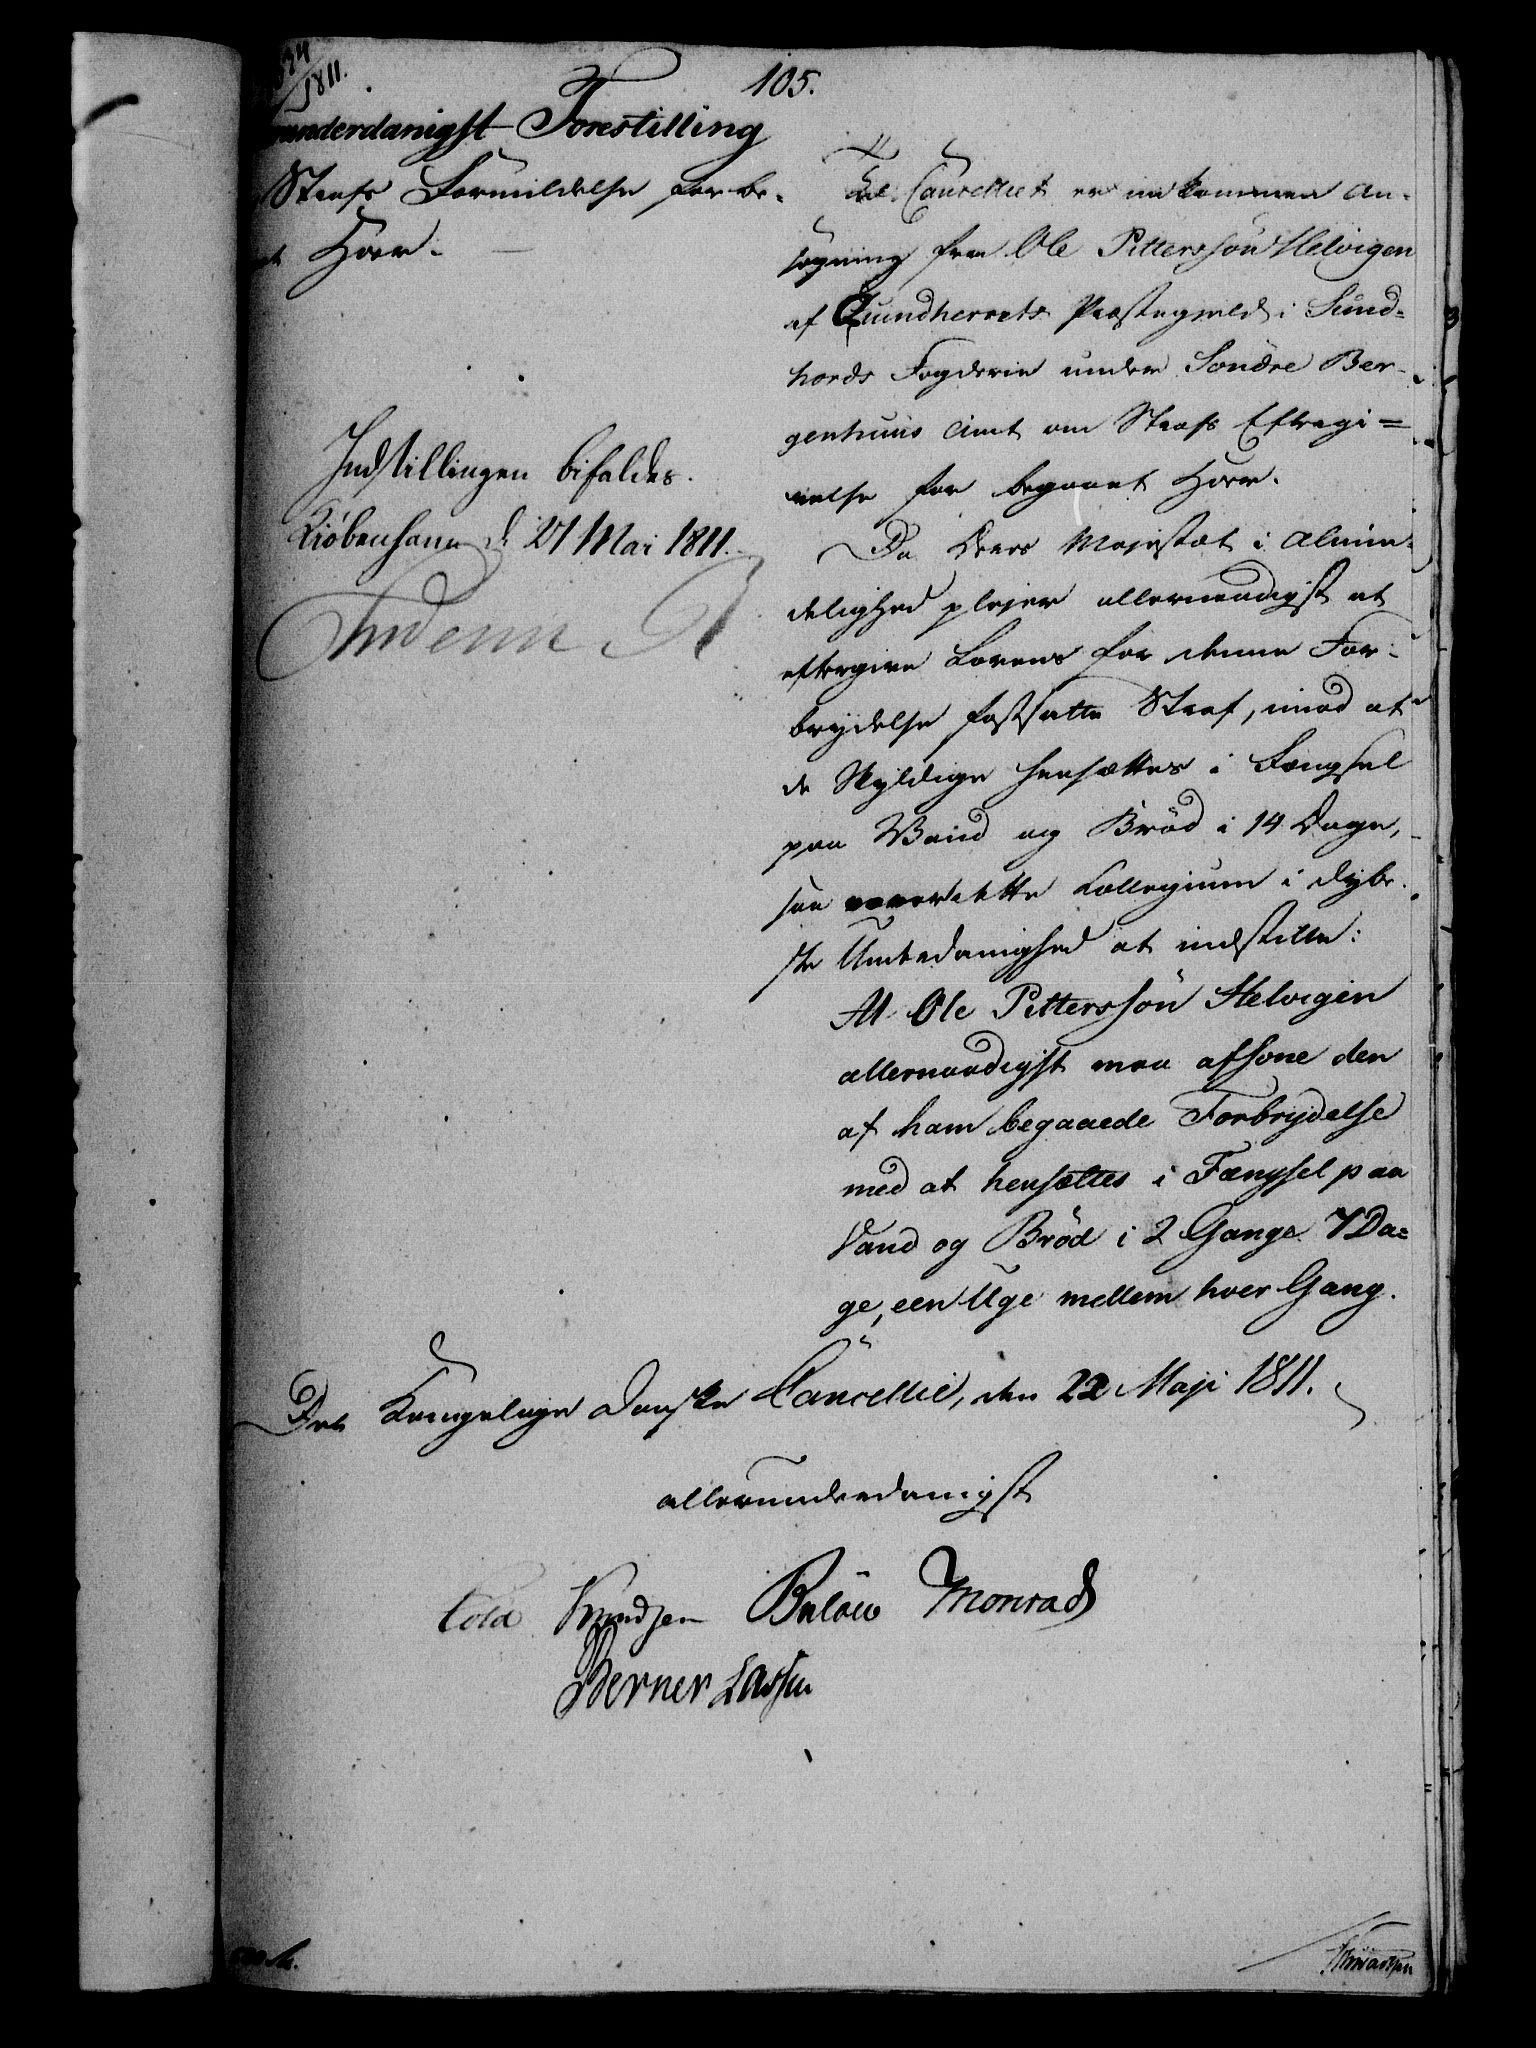 1811.
105.
underdanigst Forestilling
Strafs Formildelse for be-
Hoer.
Til Cancelliet er indkommen An-
søgning fra Ole Pitterssøn Helvigen
af Quindherrets Præstegield i Sund-
hords Fogderie under Søndre Ber-
genhuus Amt om Strafs Eftergi=
velse for begaaet Hoer.
Da Deres Majestæt i Almin-
delighed plejer allernaadigst at
eftergive Lovens for denne For-
brydelse fastsatte Straf, imod at
de Skyldige hensættes i Fængsel
paa Vand og Brød i 14 Dage,
saa dette Collegium i dybe-
ste Underdanighed at indstille:
At Ole Pitterssøn Helvigen
allernaadigst maa afsone den
af ham begaaede Forbrydelse
med at hensættes i Fængsel paa
Vand og Brød i 2 Gange 7 Da=
ge, een Uge mellem hver Gang.
Indstillingen bifaldes.
Kiøbenhavn d: 27 Mai 1811.
Frideric R
Det Kongelige Danske Cancellie, den 22 Maji 1811.
allerunderdanigst
Cold Knudsen Bülow Monrad
Berner Lassen